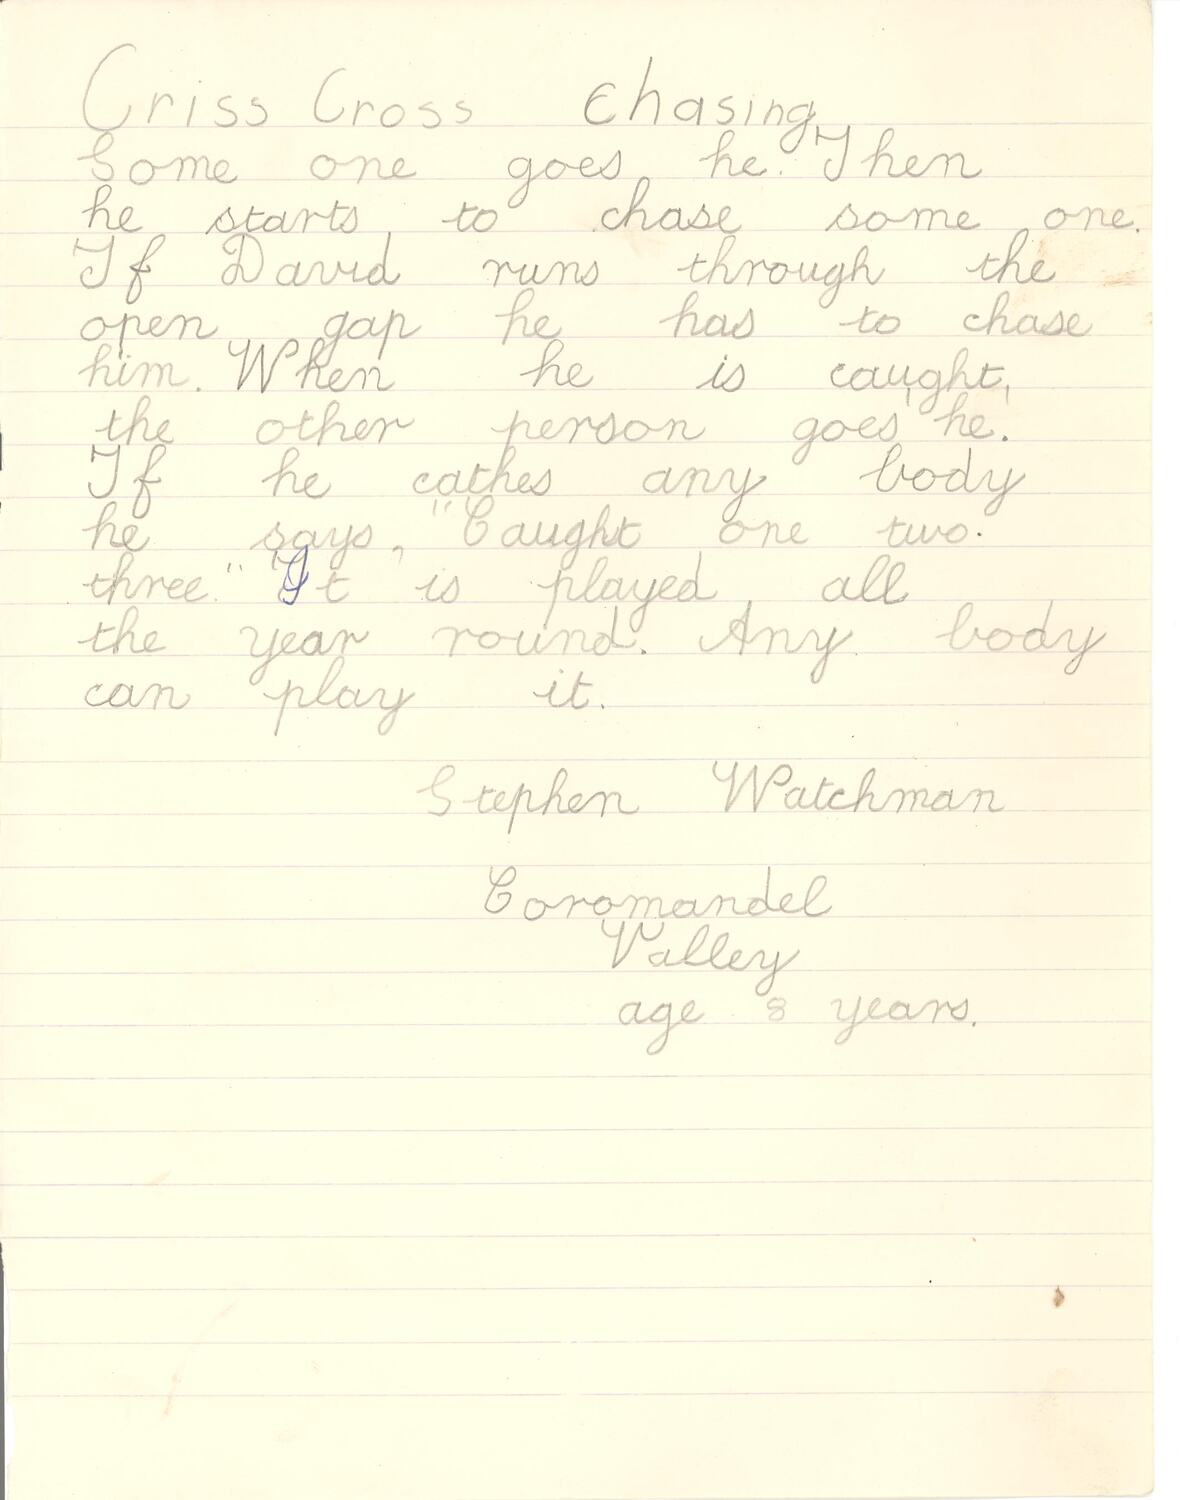 Criss Cross Chasing
Some one goes he. Then
he starts to chase some one.
If David runs through the
open gap he has to chase
him. When he is caught,
the other person goes "he".
If he cathes any body
he says, "Caught one two
three." It is played all
the year round. Any body
can play it.
Stephen Watchman
Coromandel
Valley
age 8 years.